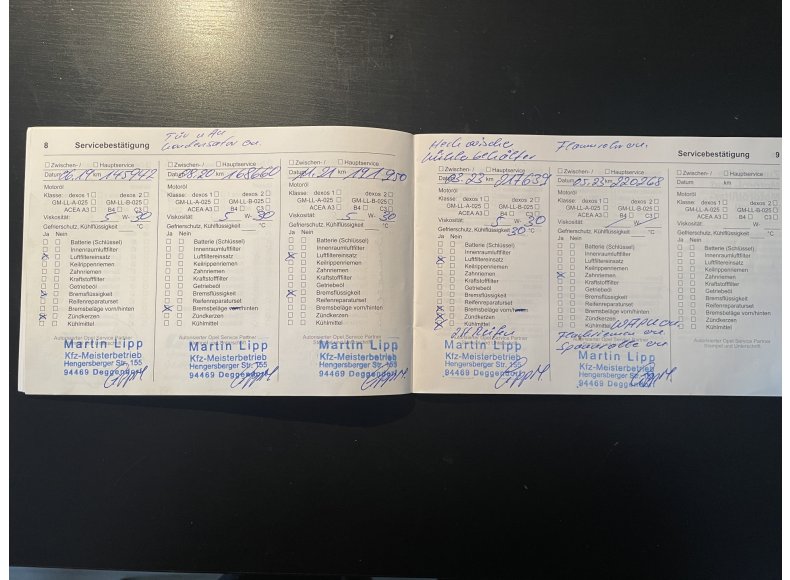 8 Servicebestätigung
Tür u AU
Kondensator ern.
☐ Zwischen- / ☐ Hauptservice
Datum 06.19 km 145942
Motoröl
Klasse: dexos 1 ☐ dexos 2 ☐
GM-LL-A-025 ☐ GM-LL-B-025 ☐
ACEA A3 ☐ B4 ☐ C3 ☐
Viskosität: 5 W- 30
Gefrierschutz, Kühlflüssigkeit °C
Ja Nein
☐ ☐ Batterie (Schlüssel)
☐ ☐ Innenraumluftfilter
☒ ☐ Luftfiltereinsatz
☐ ☐ Keilrippenriemen
☐ ☐ Zahnriemen
☐ ☐ Kraftstofffilter
☐ ☐ Getriebeöl
☒ ☐ Bremsflüssigkeit
☐ ☐ Reifenreparaturset
☐ ☐ Bremsbeläge vorn/hinten
☒ ☐ Zündkerzen
☐ ☐ Kühlmittel
Autorisierter Opel Service Partner
Martin Lipp
Kfz-Meisterbetrieb
Hengersberger Str. 155
94469 Deggendorf
☐ Zwischen- / ☐ Hauptservice
Datum 08.20 km 168660
Motoröl
Klasse: dexos 1 ☐ dexos 2 ☐
GM-LL-A-025 ☐ GM-LL-B-025 ☐
ACEA A3 ☐ B4 ☐ C3 ☐
Viskosität: 5 W- 30
Gefrierschutz, Kühlflüssigkeit °C
Ja Nein
☐ ☐ Batterie (Schlüssel)
☐ ☐ Innenraumluftfilter
☐ ☐ Luftfiltereinsatz
☐ ☐ Keilrippenriemen
☐ ☐ Zahnriemen
☐ ☐ Kraftstofffilter
☐ ☐ Getriebeöl
☐ ☐ Bremsflüssigkeit
☐ ☐ Reifenreparaturset
☒ ☐ Bremsbeläge vorn/hinten
☐ ☐ Zündkerzen
☐ ☐ Kühlmittel
Autorisierter Opel Service Partner
Martin Lipp
Kfz-Meisterbetrieb
Hengersberger Str. 155
94469 Deggendorf
☐ Zwischen- / ☐ Hauptservice
Datum 21 km 191950
Motoröl
Klasse: dexos 1 ☐ dexos 2 ☐
GM-LL-A-025 ☐ GM-LL-B-025 ☐
ACEA A3 ☐ B4 ☐ C3 ☐
Viskosität: 5 W- 30
Gefrierschutz, Kühlflüssigkeit °C
Ja Nein
☐ ☐ Batterie (Schlüssel)
☐ ☐ Innenraumluftfilter
☒ ☐ Luftfiltereinsatz
☐ ☐ Keilrippenriemen
☐ ☐ Zahnriemen
☐ ☐ Kraftstofffilter
☐ ☐ Getriebeöl
☒ ☐ Bremsflüssigkeit
☐ ☐ Reifenreparaturset
☐ ☐ Bremsbeläge vorn/hinten
☐ ☐ Zündkerzen
☐ ☐ Kühlmittel
Autorisierter Opel Service Partner
Martin Lipp
Kfz-Meisterbetrieb
Hengersberger Str. 155
94469 Deggendorf
☐ Zwischen- / ☐ Hauptservice
Datum 03.23 km 217639
Motoröl
Klasse: dexos 1 ☐ dexos 2 ☐
GM-LL-A-025 ☐ GM-LL-B-025 ☐
ACEA A3 ☐ B4 ☐ C3 ☐
Viskosität: 5 W- 30
Gefrierschutz, Kühlflüssigkeit 30 °C
Ja Nein
☐ ☐ Batterie (Schlüssel)
☐ ☐ Innenraumluftfilter
☒ ☐ Luftfiltereinsatz
☐ ☐ Keilrippenriemen
☐ ☐ Zahnriemen
☐ ☐ Kraftstofffilter
☐ ☐ Getriebeöl
☐ ☐ Bremsflüssigkeit
☐ ☐ Reifenreparaturset
☒ ☐ Bremsbeläge vorn/hinten
☒ ☐ Zündkerzen
☒ ☐ Kühlmittel
Autorisierter Opel Service Partner
Martin Lipp
Kfz-Meisterbetrieb
Hengersberger Str. 155
94469 Deggendorf
☐ Zwischen- / ☐ Hauptservice
Datum 05.23 km 220268
Motoröl
Klasse: dexos 1 ☐ dexos 2 ☐
GM-LL-A-025 ☐ GM-LL-B-025 ☐
ACEA A3 ☐ B4 ☐ C3 ☐
Viskosität: W-
Gefrierschutz, Kühlflüssigkeit °C
Ja Nein
☐ ☐ Batterie (Schlüssel)
☐ ☐ Innenraumluftfilter
☐ ☐ Luftfiltereinsatz
☐ ☐ Keilrippenriemen
☒ ☐ Zahnriemen
☐ ☐ Kraftstofffilter
☐ ☐ Getriebeöl
☐ ☐ Bremsflüssigkeit
☐ ☐ Reifenreparaturset
☐ ☐ Bremsbeläge vorn/hinten
☐ ☐ Zündkerzen
☐ ☐ Kühlmittel
Spannrolle ern
Martin Lipp
Kfz-Meisterbetrieb
Hengersberger Str. 155
94469 Deggendorf
Servicebestätigung 9
☐ Zwischen- / ☐ Hauptservice
Datum km
Motoröl
Klasse: dexos 1 ☐ dexos 2 ☐
GM-LL-A-025 ☐ GM-LL-B-025 ☐
ACEA A3 ☐ B4 ☐ C3 ☐
Viskosität: W-
Gefrierschutz, Kühlflüssigkeit °C
Ja Nein
☐ ☐ Batterie (Schlüssel)
☐ ☐ Innenraumluftfilter
☐ ☐ Luftfiltereinsatz
☐ ☐ Keilrippenriemen
☐ ☐ Zahnriemen
☐ ☐ Kraftstofffilter
☐ ☐ Getriebeöl
☐ ☐ Bremsflüssigkeit
☐ ☐ Reifenreparaturset
☐ ☐ Bremsbeläge vorn/hinten
☐ ☐ Zündkerzen
☐ ☐ Kühlmittel
Autorisierter Opel Service Partner
Stempel und Unterschrift